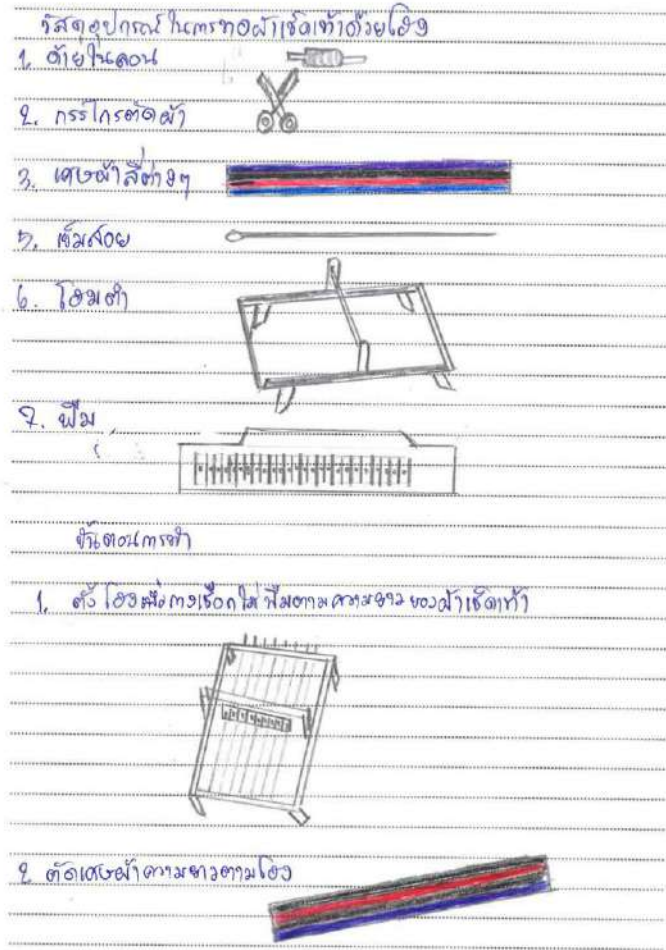 วัสดุอุปกรณ์ในการทอผ้าเช็ดเท้าด้วยโฮง
1. ด้ายไนลอน
2. กรรไกรตัดผ้า
3. เศษผ้าสีต่างๆ
5. เข็มสอย
6. โฮมต่ำ
7. ฟืม
ขั้นตอนการทำ
1. ตั้งโฮงเพื่อกางเชือกใส่ฟืมตามความยาวของผ้าเช็ดเท้า
2 ตัดเศษผ้าความยาวตามโฮง